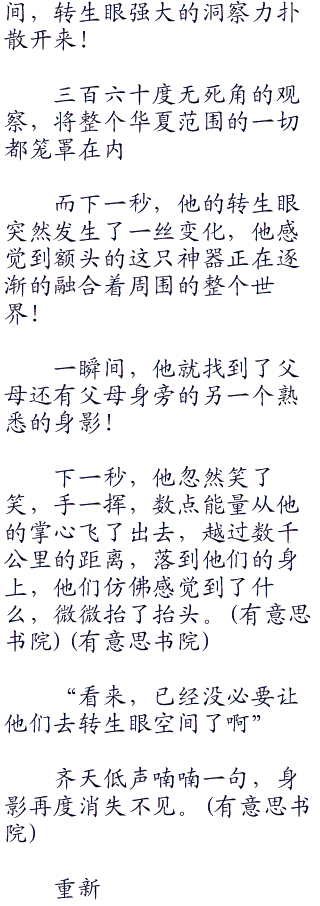 间，转生眼强大的洞察力扑
散开来！
三百六十度无死角的观
察，将整个华夏范围的一切
都笼罩在内
而下一秒，他的转生眼
突然发生了一丝变化，他感
觉到额头的这只神器正在逐
渐的融合着周围的整个世
界！
一瞬间，他就找到了父
母还有父母身旁的另一个熟
悉的身影！
下一秒，他忽然笑了
笑，手一挥，数点能量从他
的掌心飞了出去，越过数千
公里的距离，落到他们的身
上，他们仿佛感觉到了什
么，微微抬了抬头。（有意思
书院）（有意思书院）
“看来，已经没必要让
他们去转生眼空间了啊”
齐天低声喃喃一句，身
影再度消失不见。（有意思书
院）
重新